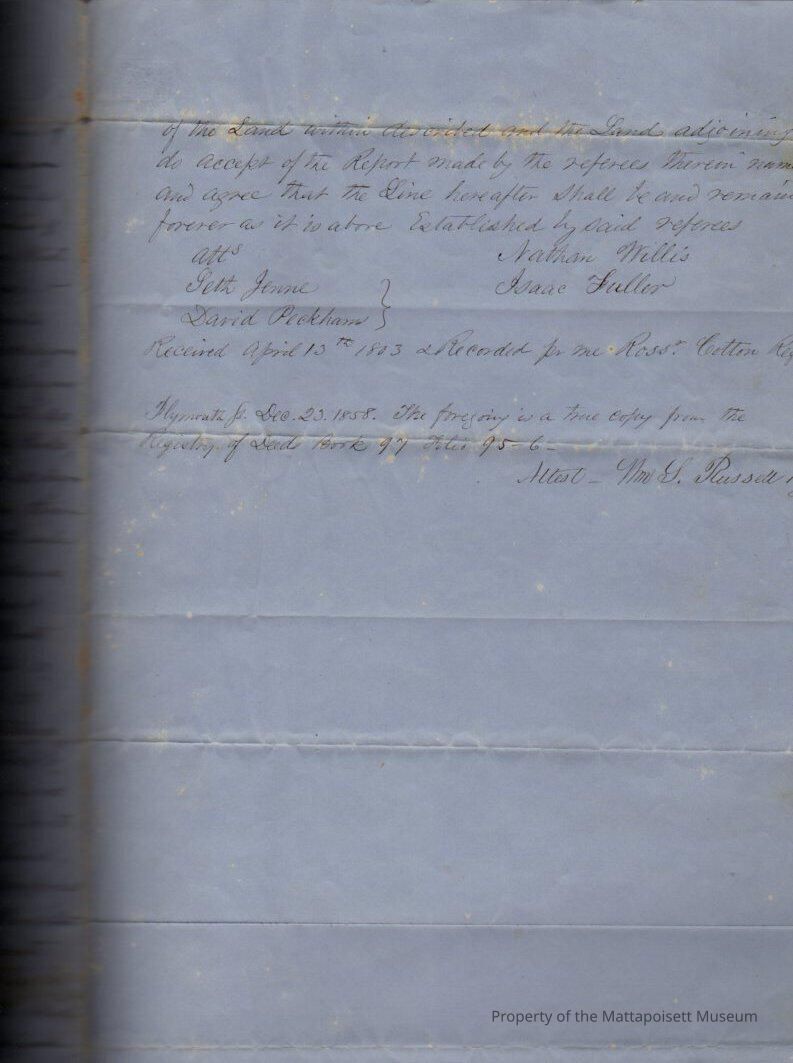 of the Land within described and the Land adjoining
do accept of the Report made by the referees therein nam
and agree that the Line hereafter Shall be and remain
forever as it is above Established by said referees
Atts Nathan Willis
Seth Jenne Isaac Fuller
David Peckham
Received April 13th 1803 & Recorded pr me Rossr Cotton Reg
Plymouth ss. Dec. 23. 1858. The foregoing is a true copy from the
Registry of Deeds Book 97 Folio 95-6-
Attest - Wm S. Russell
Property of the Mattapoisett Museum